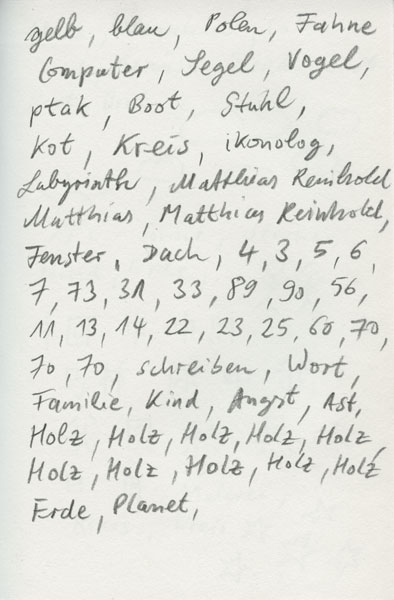 gelb, blau, Polen, Fahne
Computer, Segel, Vogel,
ptak, Boot, Stuhl,
kot, Kreis, ikonolog,
Labyrinth, Matthias Reinhold
Matthias, Matthias Reinhold,
Fenster, Dach, 4, 3, 5, 6,
7, 73, 31, 33, 89, 90, 56,
11, 13, 14, 22, 23, 25, 60, 70,
70, 70, schreiben, Wort,
Familie, Kind, Angst, Ast,
Holz, Holz, Holz, Holz, Holz,
Holz, Holz, Holz, Holz, Holz
Erde, Planet,